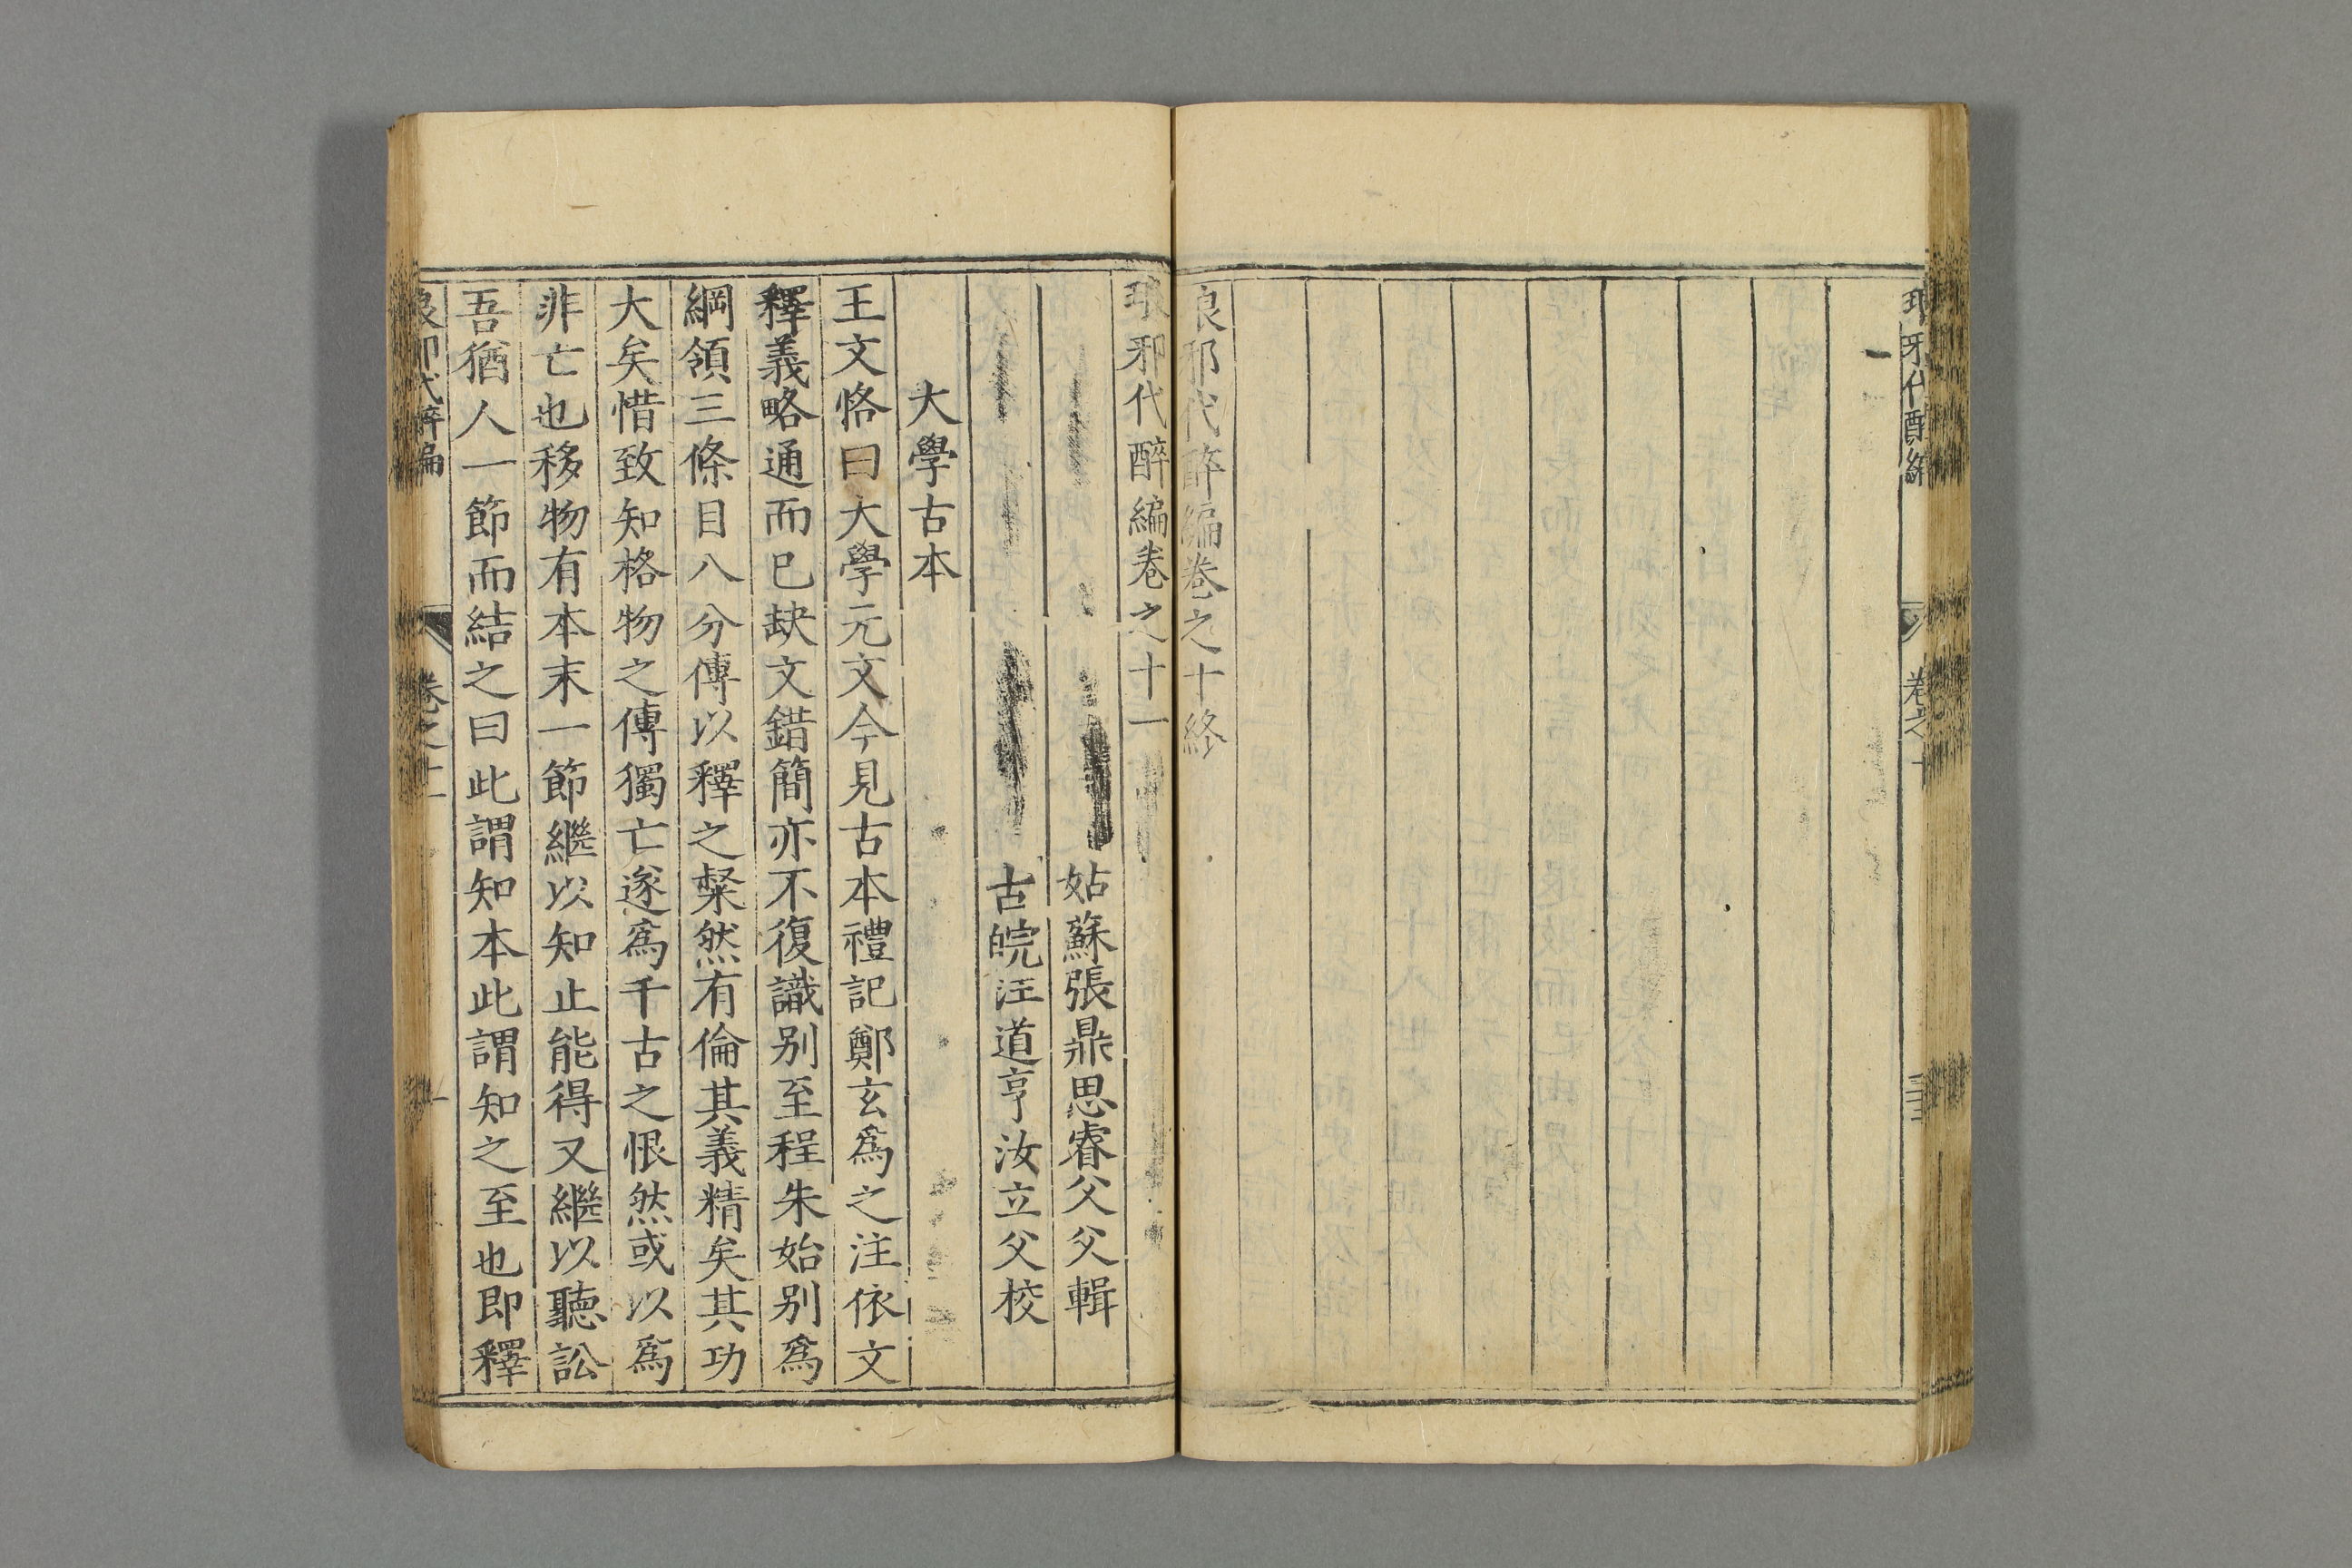 琅邪代醉編
卷之十
琅邪代醉編卷之十終
琅邪代醉編卷之十一
姑蘇張鼎思睿父父輯
古皖汪道亨汝立父校
大學古本
王文恪曰大學元文今見古本禮記鄭玄爲之注依文
釋義略通而已缺文錯簡亦不復識别至程朱始别爲
綱領三條目八分傳以釋之粲然有倫其義精矣其功
大矣惜致知格物之傳獨亡遂爲千古之恨然或以爲
非亡也移物有本末一節繼以知止能得又繼以聽訟
吾猶人一節而結之曰此謂知本此謂知之至也即釋
琅邪代醉編
卷之十一
一